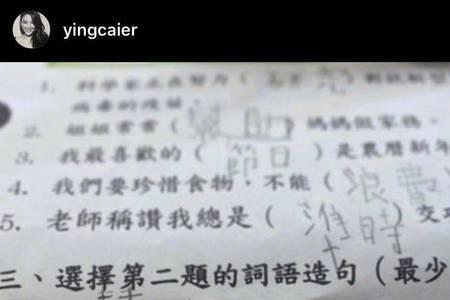 yingcaier
1. 科學家正在努力（研究）對抗新型
病毒的
2. 姐姐常常（幫助）媽媽做家務。
3. 我最喜歡的（節日）是農曆新年
4. 我們要珍惜食物，不能（浪費
5. 老師稱讚我總是（準時）交
三、選擇第二題的詞語造句（最少